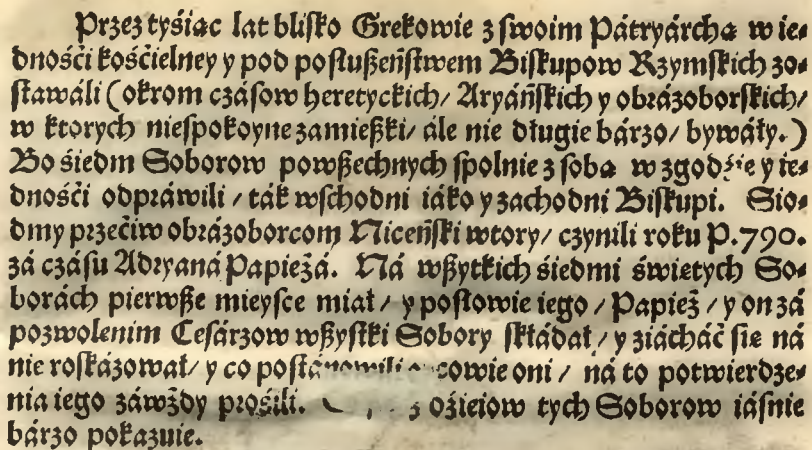 Przez tyśiąc lat blisko Grekowie z swoim Pátryárchą w ie-
dnośći kośćielney y pod posłuszeństwem Biskupow Rzymskich zo-
stawáli (okrom czásow heretyckich/ Aryáńskich y obrázoborskich/
w ktorych niespokoyne zamieszki/ ále nie długie bárzo/ bywáły.)
Bo śiedm Soborow powszechnych spolnie z sobą w zgodźie y ie-
dnośći odpráwili / ták wschodni iáko y zachodni Biskupi. Sio-
dmy przećiw obrázoborcom Niceński wtory/ czynili roku P. 790.
zá czásu Adryaná Papieżá. Ná wszytkich śiedmi świetych So-
borách pierwsze mieysce miał / y posłowie iego / Papież / y on zá
pozwolenim Cesárzow wszystki Sobory składał / y ziácháć sie ná
nie roskázował / y co oni / ná to potwierdze-
nia iego záwżdy prośili. z dźieiow tych Soborow iáśnie
bárzo pokazuie.